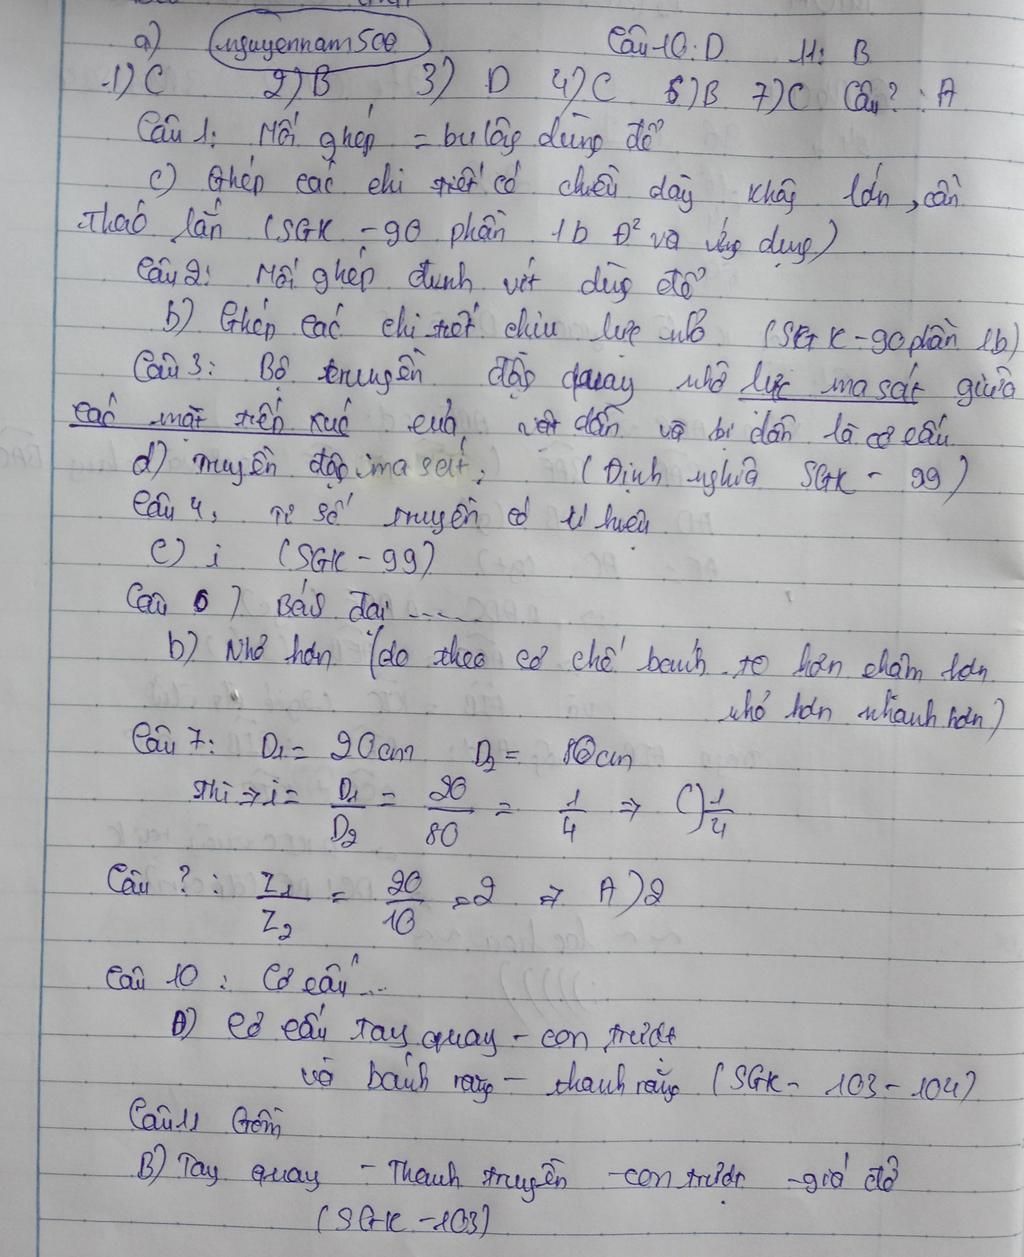 a) nguyennam500 Câu 10: D 11: B
1) C 2) B 3) D 4) C 6) B 7) C Câu ? : A
Câu 1: Mối ghép = bu lông dùng để
c) Ghép các chi tiết có chiều dày không lớn, cần
tháo lắp (SGK - 90 phần 1b Đ² và ứng dụng)
Câu 2: Mối ghép đinh vít dùng để
b) Ghép các chi tiết chịu lực nhỏ (SGK - 90 phần 1b)
Câu 3: Bộ truyền động quay nhờ lực ma sát giữa
các mặt tiếp xúc của vật dẫn và bị dẫn là cơ cấu
d) Truyền động ma sát. (Định nghĩa SGK - 99)
Câu 4, Tỉ số truyền có kí hiệu
c) i (SGK - 99)
Câu 6) Bánh đai ....
b) Nhỏ hơn (do theo cơ chế bánh to hơn chậm hơn
nhỏ hơn nhanh hơn)
Câu 7: D1 = 20cm D2 = 80cm
thì => i = D1/D2 = 20/80 = 1/4 => C) 1/4
Câu ? : Z1/Z2 = 20/10 = 2 => A) 2
Câu 10 : Cơ cấu...
D) Cơ cấu tay quay - con trượt
và bánh răng - thanh răng (SGK - 103 - 104)
Câu 11 Gồm
B) Tay quay - Thanh truyền - con trượt - giá đỡ
(SGK - 103)